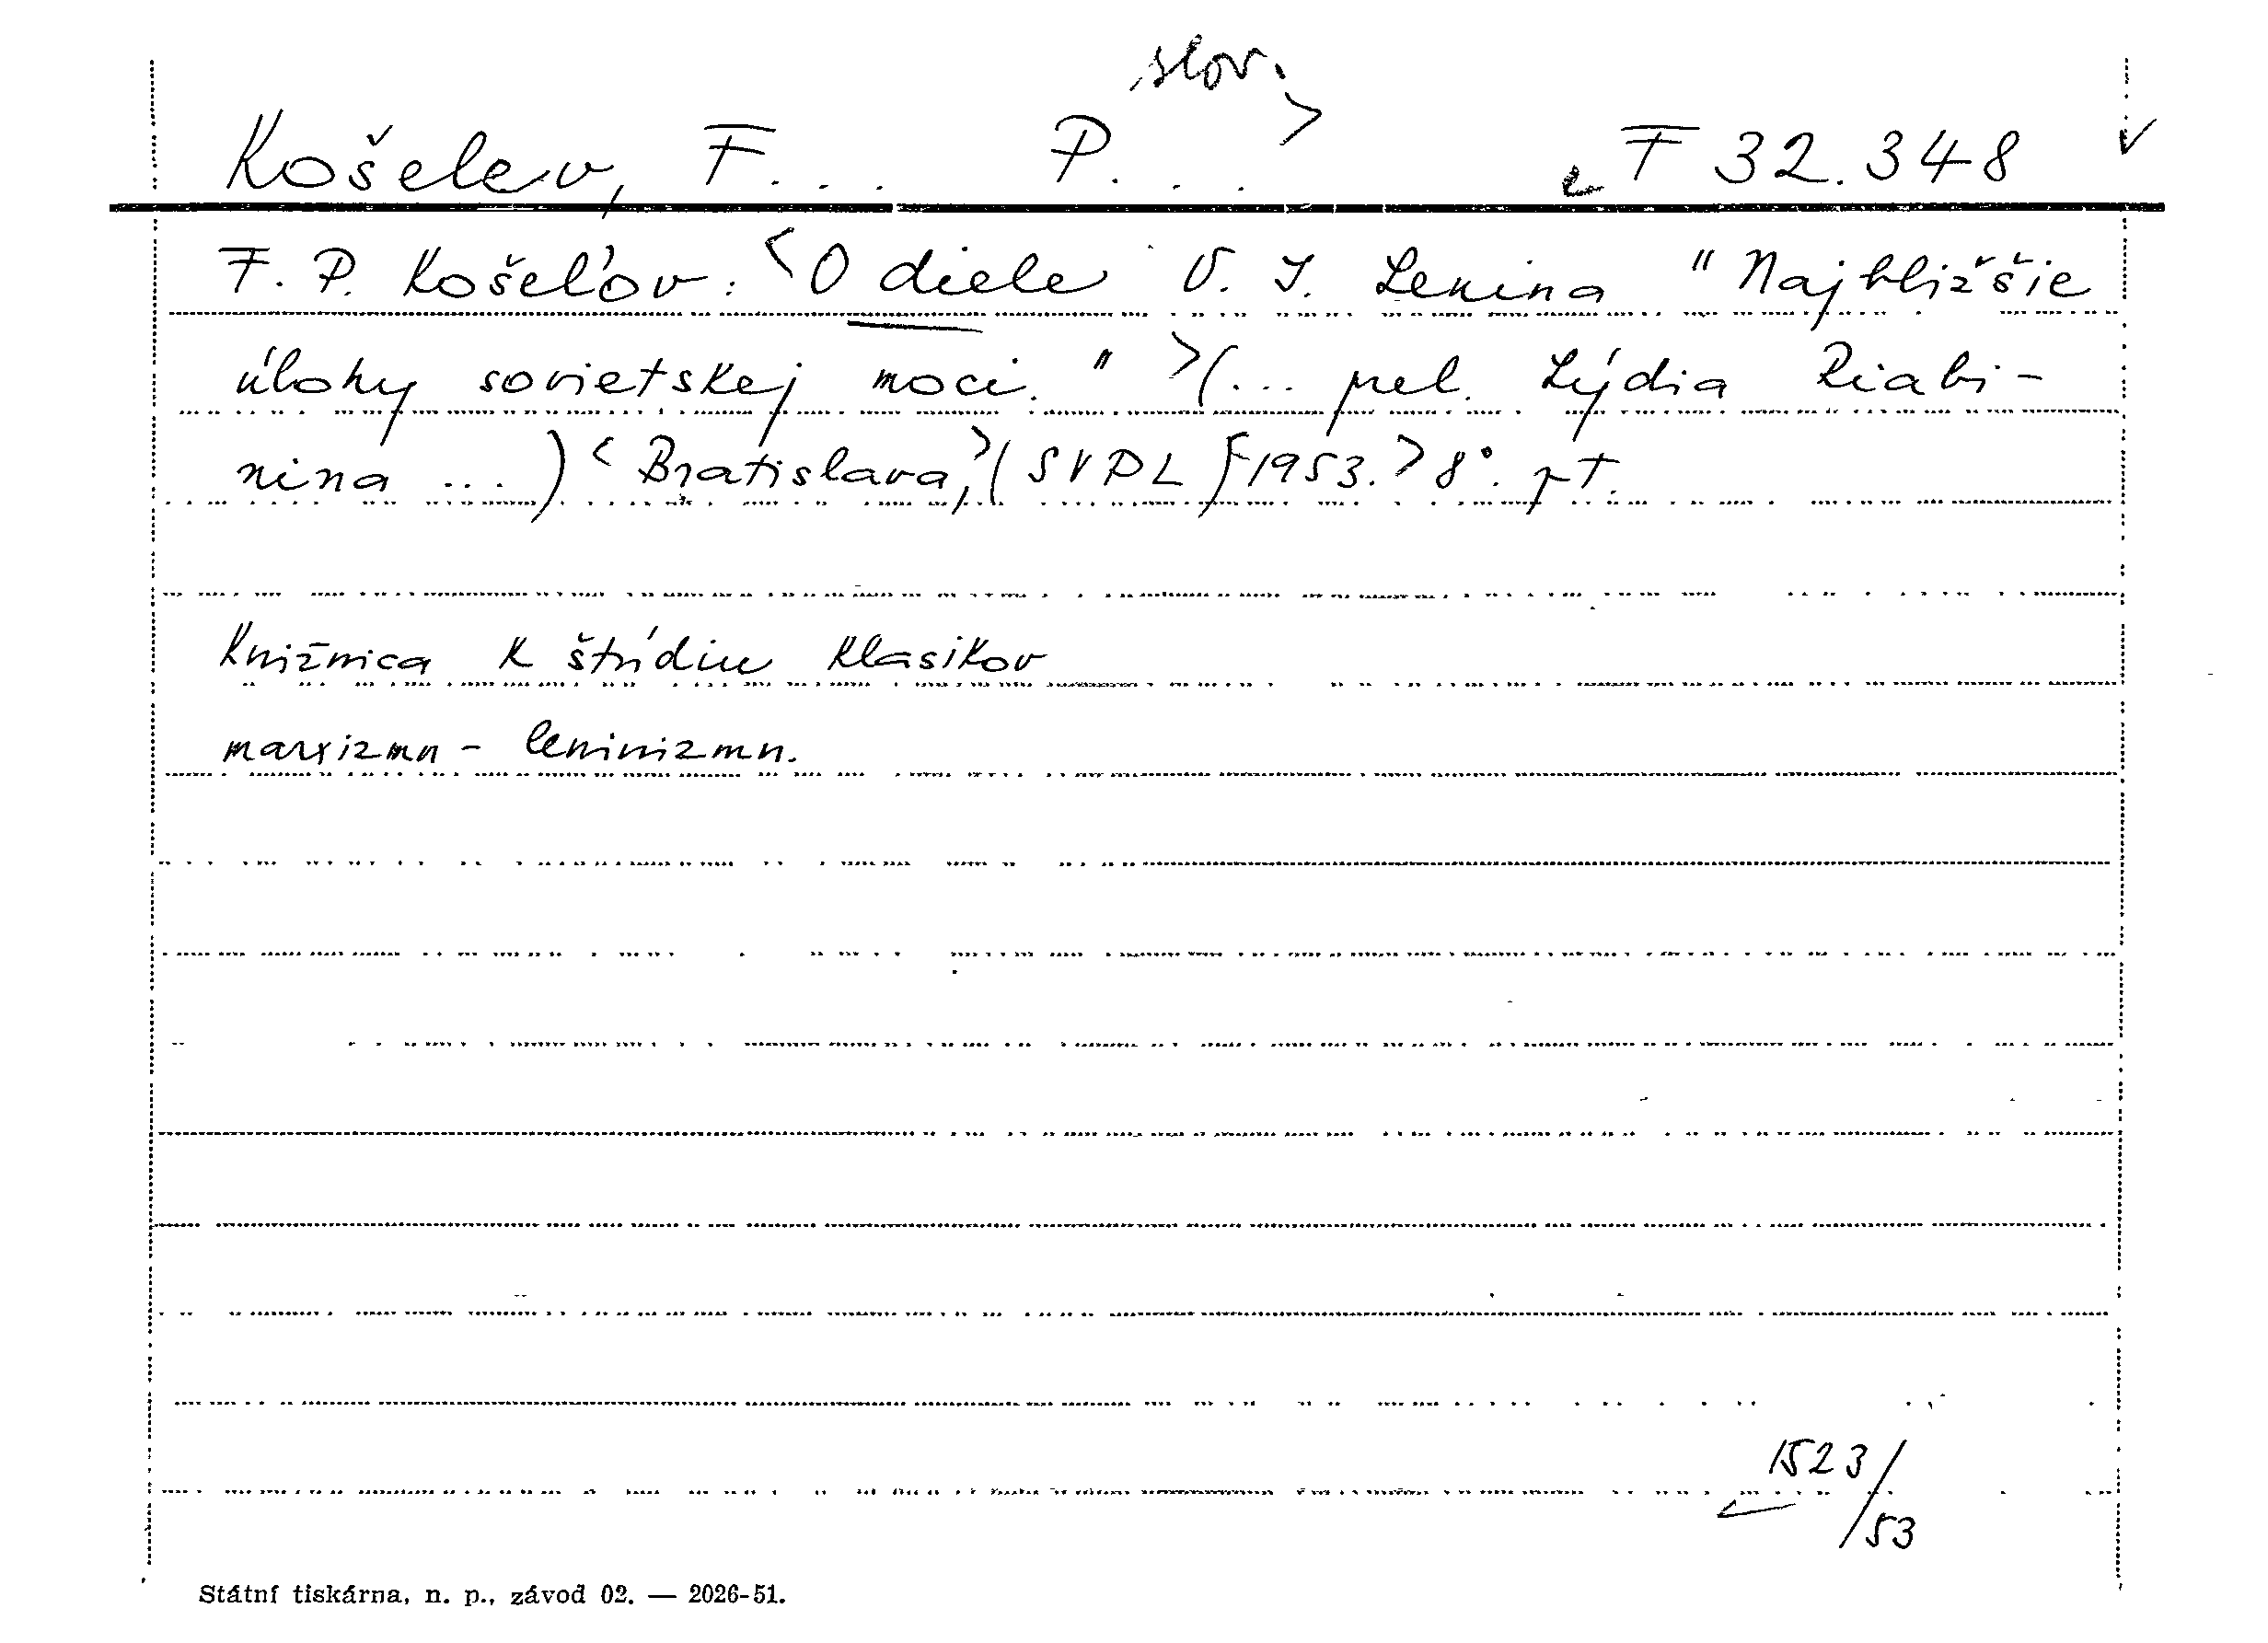 slov.
Košelev, F... P...> F 32.348
F. P. Košeľov: <O diele V. I. Lenina "Najbližšie
úlohy sovietskej moci." >(... prel. Lýdia Riabi-
nina ...) <Bratislava,>(SVPL) <1953.> 8°. pt.
Knižnica k štúdiu klasikov
marxizmu - leninizmu.
1523/53
Státní tiskárna, n. p., závod 02. — 2026-51.